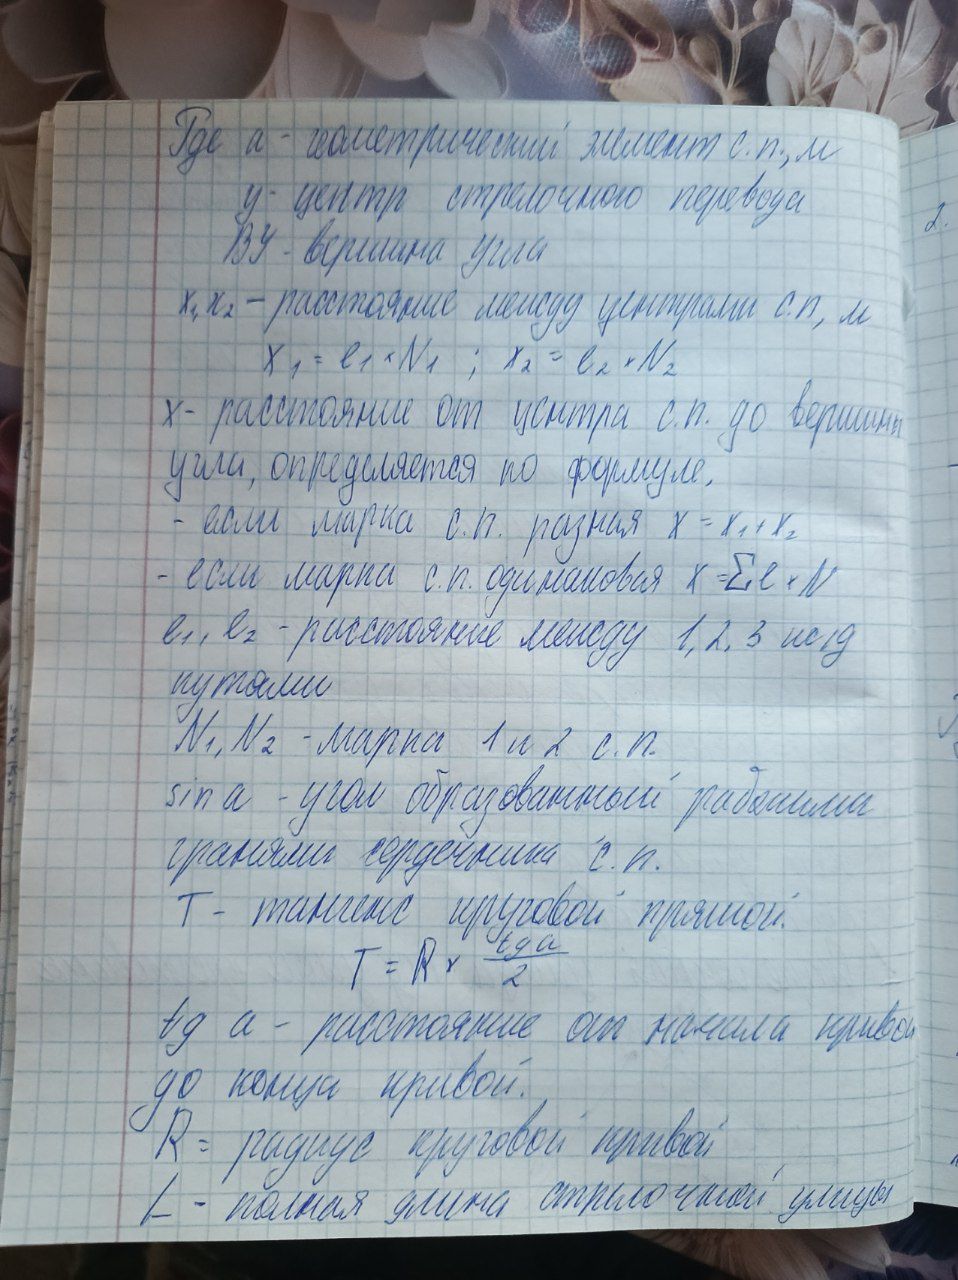 Где а - геометрический элемент с.п., м
у - центр стрелочного перевода
ВУ - вершина угла
x₁, x₂ - расстояние между центрами с.п, м
x₁ = e₁ × N₁ ; x₂ = e₂ × N₂
x - расстояние от центра с.п. до вершины
угла, определяется по формуле.
- если марка с.п. разная x = x₁ + x₂
- если марка с.п. одинаковая x = Σe × N
e₁, e₂ - расстояние между 1, 2, 3
путями
N₁, N₂ - марка 1 и 2 с.п.
sin a - угол образованный рабочими
гранями сердечника с.п.
Т - тангенс круговой прямой.
T = R × tg a / 2
tg a - расстояние от начала кривой
до конца кривой.
R = радиус круговой кривой
L - полная длина стрелочной улицы
2.